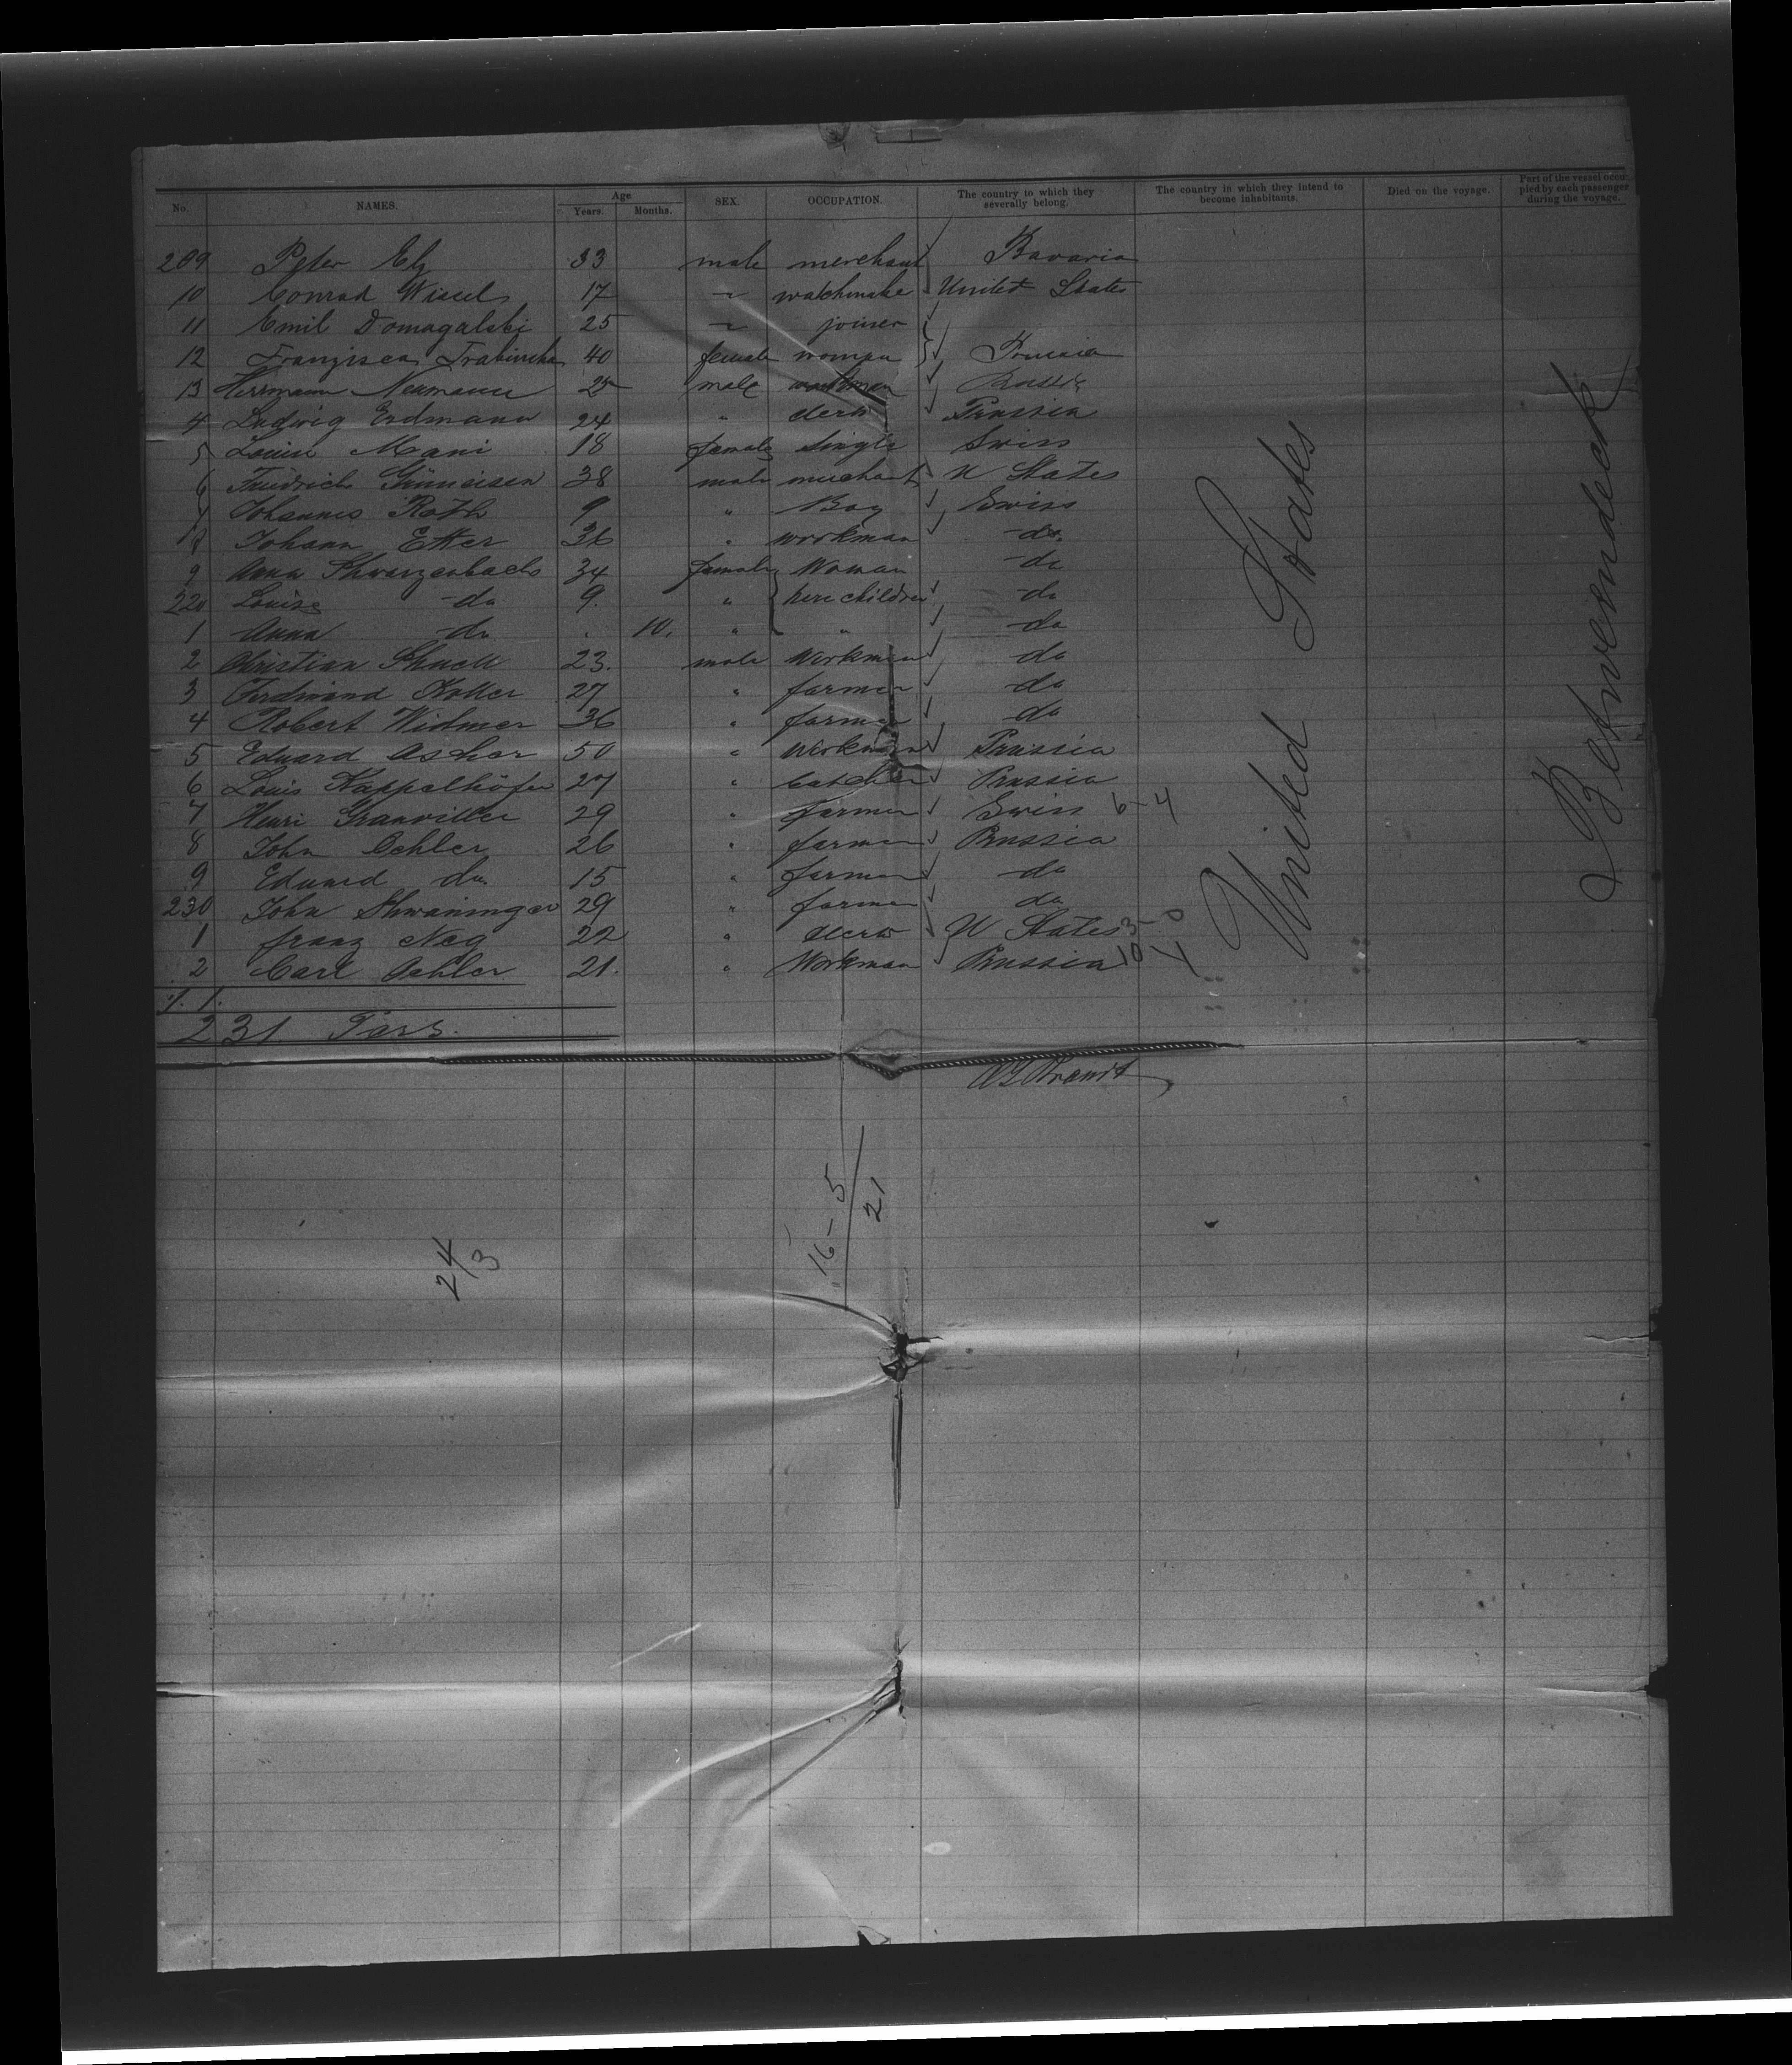 No. NAMES. Age Years. Months. SEX. OCCUPATION. The country to which they severally belong. The country in which they intend to become inhabitants. Died on the voyage. Part of the vessel occupied by each passenger during the voyage.
209 Peter 33 male merchant Bavaria
10 Conrad 17 " watchmake United States
11 Emil Domagalski 25 " joiner
12 Franzisca 40 female woman Prussia
13 Herrmann Neumann 25 male workman
4 Ludwig Erdmann 24 " clerk Prussia
5 Louise Mani 18 female single Swiss
6 Friedrich Grüneisen 38 male merchant U States
7 Johannes Roth 9 " Boy Swiss
18 Johann Etter 36 " workman do
9 Anna Shwarzenbach 34 female Woman do
220 Louise do 9. " here children do
1 Anna do . 10. " " do
2 Christian 23. male Workman do
3 Ferdinand Koller 27 " farmer do
4 Robert Widmer 36 " farmer do
5 Eduard Asher 50 " Workman Prussia
6 Louis Kappelhöfer 27 " butcher Prussia
7 Henri Granviller 29 " farmer Swiss 6-4
8 John Oehler 26 " farmer Prussia
9 Eduard do 15 " farmer do
230 John Shwaninger 29 " farmer do
1 franz Neg 22 " clerk U States 3-0
2 Carl Oehler 21. " Workman Prussia 10 4
United States
Betweendeck
% 1.
231 Pass.
16-5
21
24/3